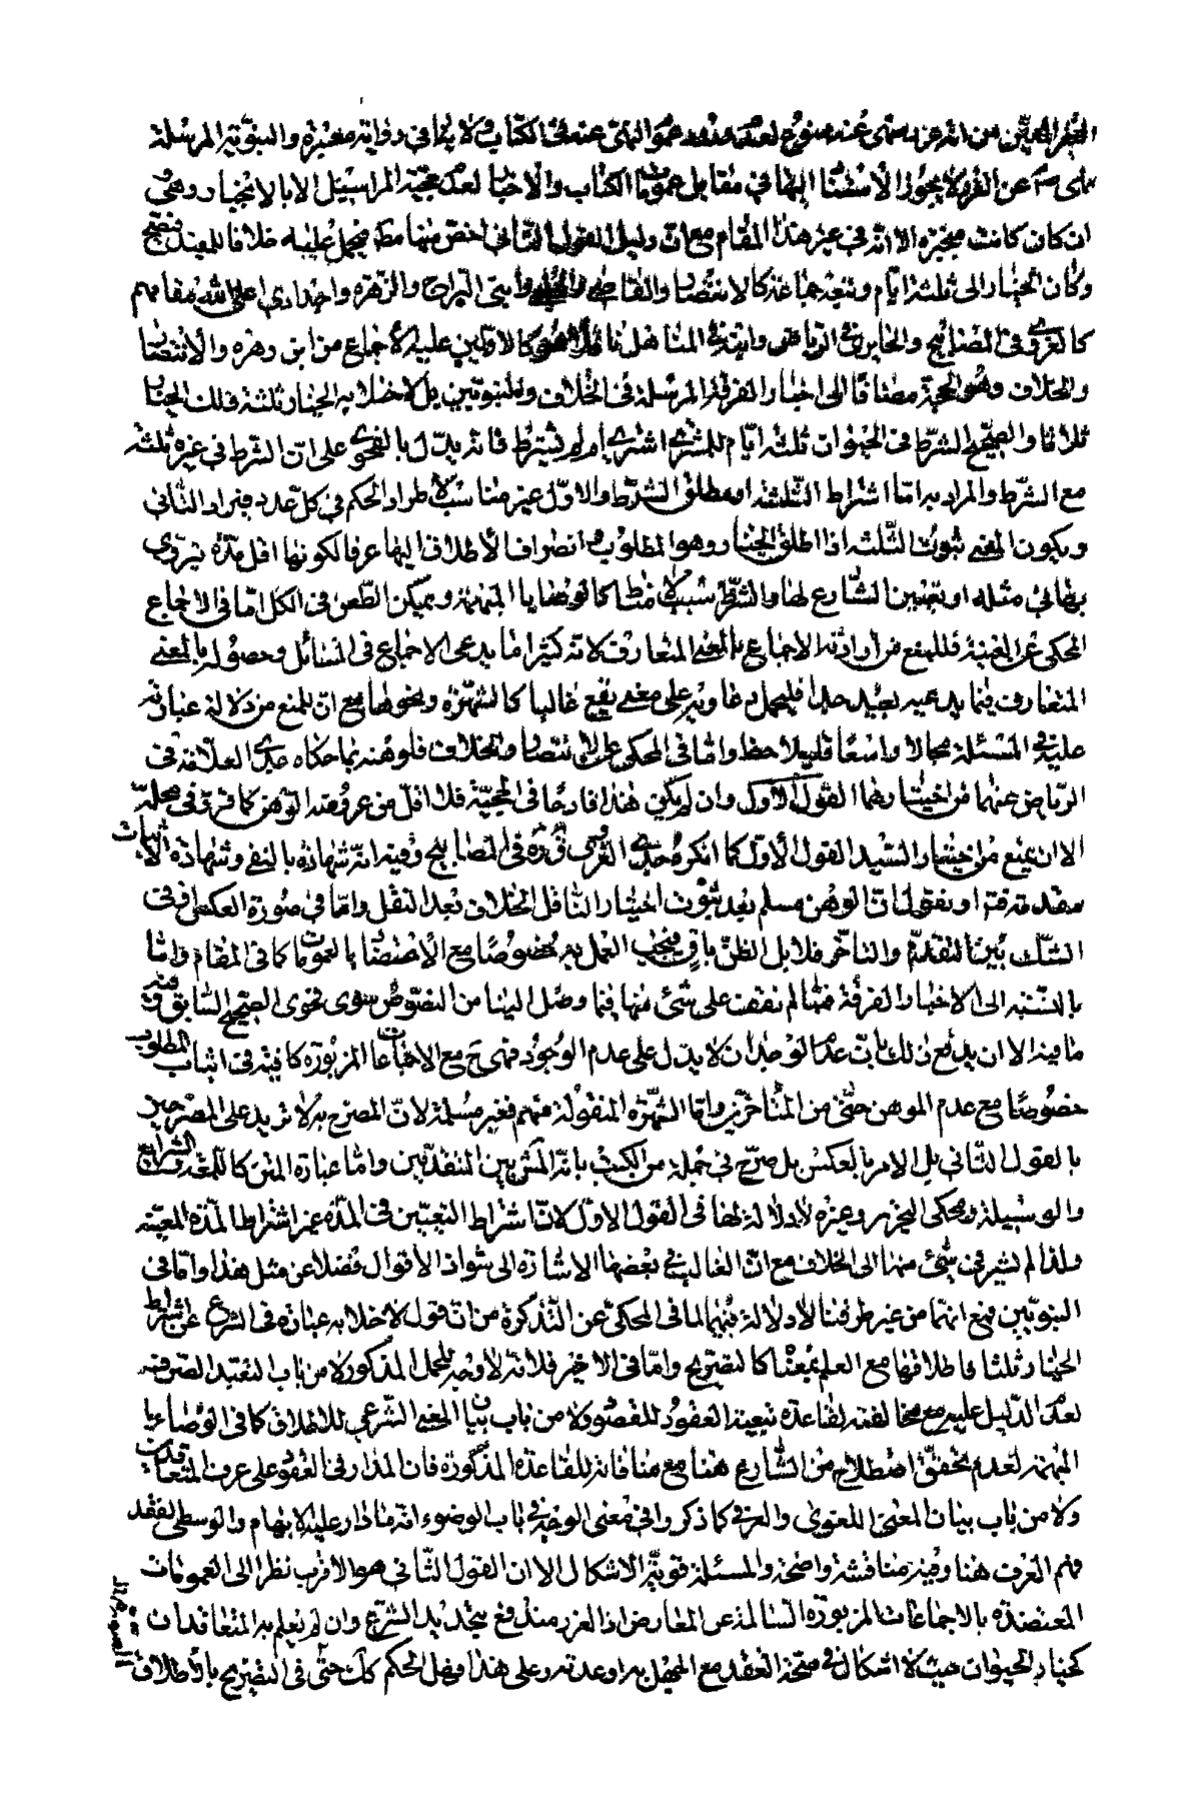 من انه غرر منهى عنه ممنوع لعدم عموم النهى عنه فى الكتاب لا ينافى رواية معتبرة والنبوية المرسلة
عن الغرر لا يجوز الاستناد اليها فى مقابل عمومات الكتاب والاخبار لعدم حجية المراسيل الا بالانجبار وهى
ان كان كانت منجبرة الا انه فى غير هذا المقام مع ان دليل القول الثانى اخص منها مطلقا فيحمل عليه خلافا للمفيد فيصح
وكان الخيار الى ثلثة ايام وتبعه جماعة كالانتصار والقاضى والحلبى وابنى البراج والزهرة واجدادى اعلى الله مقامهم
كالغروى فى المصابيح والحايرى فى الرياض وابنه فى المناهل كالاولين عليه الاجماع من ابن زهرة والانتصار
والخلاف وهو الحجة مضافا الى اخبار الفرقة المرسلة فى الخلاف والنبويين بل لا خلابة الخيار ثلثة فلك الخيار
ثلاثا والصحيح الشرط فى الحيوان ثلثة ايام للمشترى اشترط ام لم يشترط فانه يدل بالفحوى على ان الشرط فى غيره ثلثة
مع الشرط والمراد به اما اشتراط الثلثة او مطلق الشرط والاول غير مناسب لاطراد الحكم فى كل عدد فيراد الثانى
ويكون المعنى ثبوت الثلثة اذا اطلق الخيار وهو المطلوب انصراف الاطلاق اليها عرفا لكونها اقل مدة يتروى
بها فى مثله او تعيين الشارع لها والشرط سبب كالوصايا المبهمة ويمكن الطعن فى الكل اما فى الاجماع
المحكى عن الغنية فللمنع من ارادته الاجماع بالمعنى المتعارف لانه كثيرا ما يدعى الاجماع فى المسائل وحصوله بالمعنى
المتعارف فيما يدعيه بعيد جدا فليحمل دعاويه على معنى يقع غالبا كالشهرة ونحوها مع ان للمنع من دلالة عبارته
عليه فى المسئلة مجالا واسعا فليلاحظ واما فى المحكى عن الانتصار والخلاف فلوهنه بما حكاه جدى العلامة فى
الرياض عنهما من اختيارهما القول الاول وان لم يكن هذا قادحا فى الحجية فلا اقل من عروضه الوهن كما قرر فى محله
الا ان يمنع من اختيار السيد القول الاول كما انكره جدى الغروى قده فى المصابيح وفيه انه شهادة بالنفى وشهادة الاثبات
مقدمة او نقول ان الوهن مسلم بعد ثبوت اختيار الناقل الخلاف بعد النقل واما فى صورة العكس او فى
الشك بين التقدم والتاخر فلا بل الظن باق فيجب العمل به خصوصا مع الاعتضاد بالعمومات كما فى المقام واما
بالنسبة الى الاخبار الفرقة فمما لم نقف على شئ منها فيما وصل الينا من النصوص سوى فحوى الصحيح السابق وفيه
ما فيه الا ان يدفع ذلك بان عدم الوجدان لا يدل على عدم الوجود فهى ح مع الاجماعات المزبورة كافية فى اثبات المطلوب
خصوصا مع عدم الموهن حتى من المتاخرين واما الشهرة المنقولة منهم فغير مسلمة لان المصرح به لا تزيد على المصرحين
بالقول الثانى بل الامر بالعكس بل صرح فى جملة من الكتب بانه المش بين المتقدمين واما عبارة المتن كاللمعة والشرايع
والوسيلة ومحكى التحرير وغيره لا دلالة لها فى القول الاول لان اشتراط التعيين فى المدة غير اشتراط المدة المعينة
ولذا لم يشر فى شئ منها الى الخلاف مع ان الغالب فى بعضها الاشارة الى شواذ الاقوال فضلا عن مثل هذا واما فى
النبويين فمع انهما من غير طرقنا لا دلالة فيهما لما فى المحكى عن التذكرة من ان قول لا خلابة عبارة فى الشرع عن اشتراط
الخيار ثلثا فاطلاقها مع العلم بمعناها كالتصريح واما فى الاخير فلانه لا وجه للحمل المذكور لا من باب التعبد الصرف
لعدم الدليل عليه مع مخالفته لقاعدة تبعية العقود للقصود ولا من باب بيان المعنى الشرعى للاطلاق كما فى الوصايا
المبهمة لعدم تحقق اصطلاح من الشارع هنا مع منافاته للقاعدة المذكورة فان المدار فى العقود على عرف المتعاقدين
ولا من باب بيان المعنى اللغوى والعرفى كما ذكروا فى معنى الوجه فى باب الوضوء انه ما دار عليه الابهام والوسطى لفقد
فهم العرف هنا وفيه مناقشة واضحة والمسئلة قوية الاشكال الا ان القول الثانى هو الاقرب نظرا الى العمومات
المعتضدة بالاجماعات المزبورة السالمة عن المعارض اذ الغرر مندفع بتحديد الشرع وان لم يعلم به المتعاقدان
كخيار الحيوان حيث لا اشكال فى صحة العقد مع الجهل به او عدته وعلى هذا فهل الحكم كك حتى فى التصريح بالاطلاق